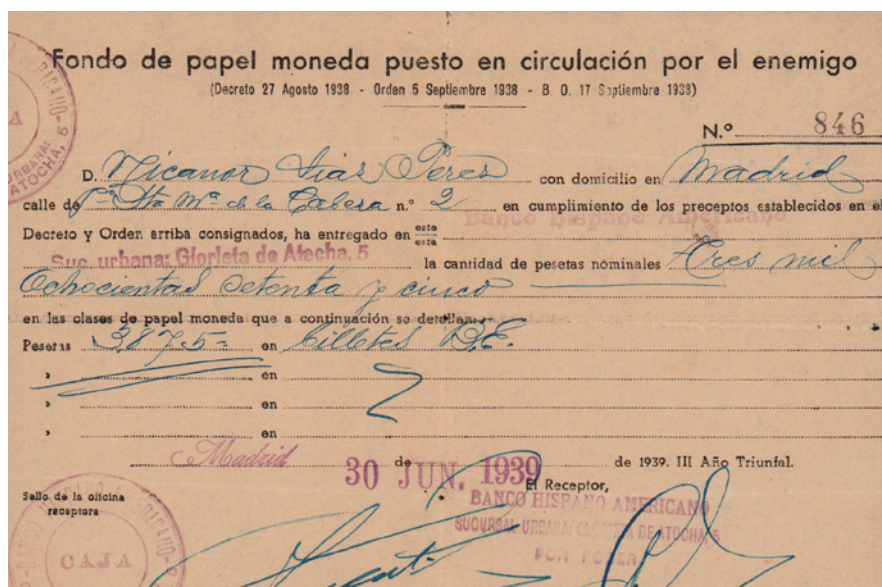 Fondo de papel moneda puesto en circulación por el enemigo
(Decreto 27 Agosto 1938 - Orden 5 Septiembre 1938 - B. O. 17 Septiembre 1938)
N.º 846
D. Nicanor Dias Peres con domicilio en Madrid
calle de Pº Sta Mª de la Cabesa n.º 2 en cumplimiento de los preceptos establecidos en el
Banco Hispano Americano
Decreto y Orden arriba consignados, ha entregado en este esta
Suc. urbana: Glorieta de Atocha, 5
la cantidad de pesetas nominales Tres mil
Ochocientas setenta y cinco
en las clases de papel moneda que a continuación se detallan:
Pesetas 3875= en billetes B.E.
» en
» en
» en
Madrid 30 JUN. 1939 de de 1939. III Año Triunfal.
Sello de la oficina
receptora
El Receptor,
BANCO HISPANO AMERICANO
SUCURSAL URBANA: GLORIETA DE ATOCHA, 5
POR PODER
CAJA